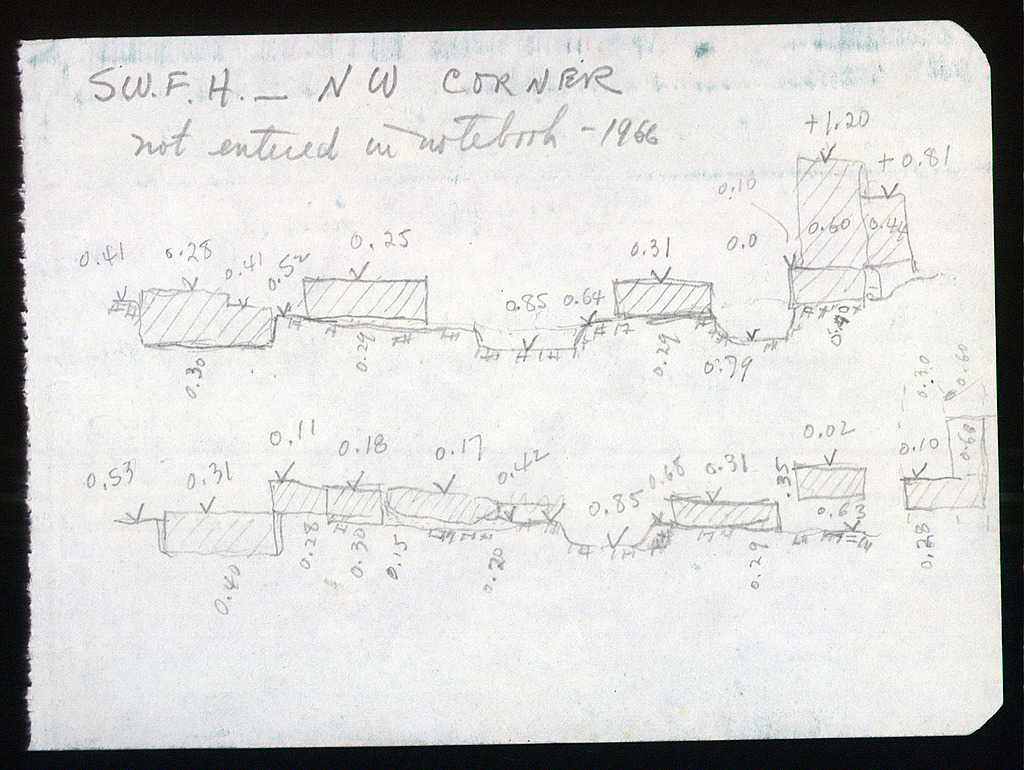 S.W.F.H. – NW CORNER
not entered in notebook – 1966
+1.20
+0.81
0.10
0.41 0.28 0.41 0.52 0.25 0.85 0.64 0.31 0.0 0.60 0.44
0.30 0.29 0.29 0.79 0.40
0.20 0.60
0.53 0.31 0.11 0.18 0.17 0.42 0.85 0.68 0.31 .35 0.02 0.63 0.10 0.68
0.40 0.28 0.30 0.15 0.20 0.29 0.28